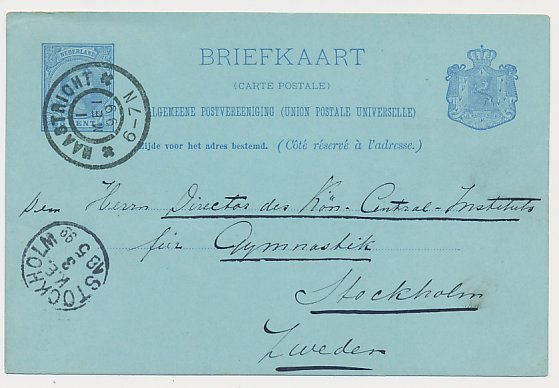 NEDERLAND
BRIEFKAART
(CARTE POSTALE)
ALGEMEENE POSTVEREENIGING (UNION POSTALE UNIVERSELLE)
CENT
Zijde voor het adres bestemd. (Côté réservé à l'adresse.)
MAASTRICHT
1 MEI 99
6-7N
Dem Herrn Director des Kön. Central-Instituts
für Gymnastik
Stockholm
Zweden
STOCKHOLM
99